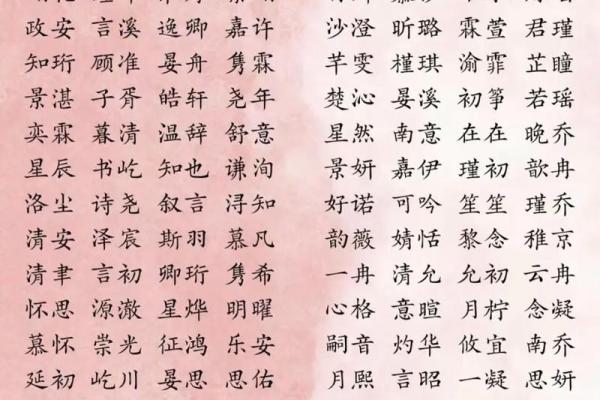 政安 言溪 逸卿 嘉许 沙澄 昕璐 霖萱 君瑾
知珩 顾准 晏舟 隽霖 芊雯 槿琪 渝霏 芷瞳
景湛 子胥 皓轩 尧年 楚沁 晏溪 初筝 若瑶
奕霖 暮清 温辞 舒意 星然 南意 在在 晚乔
星辰 书屹 知也 谦洵 景妍 嘉伊 瑾初 歆冉
洛尘 诗尧 叙言 浔知 好诺 可吟 笙笙 瑾乔
清安 泽宸 斯羽 慕凡 韵薇 婧恬 黎念 稚京
清聿 言初 卿珩 隽希 一冉 清允 允初 云冉
怀思 源澈 星烨 明曜 心格 意暄 月柠 念凝
慕怀 崇光 征鸿 乐安 嗣音 灼华 攸宜 南乔
延初 屹川 晏思 思佑 月熙 言昭 一凝 思妍